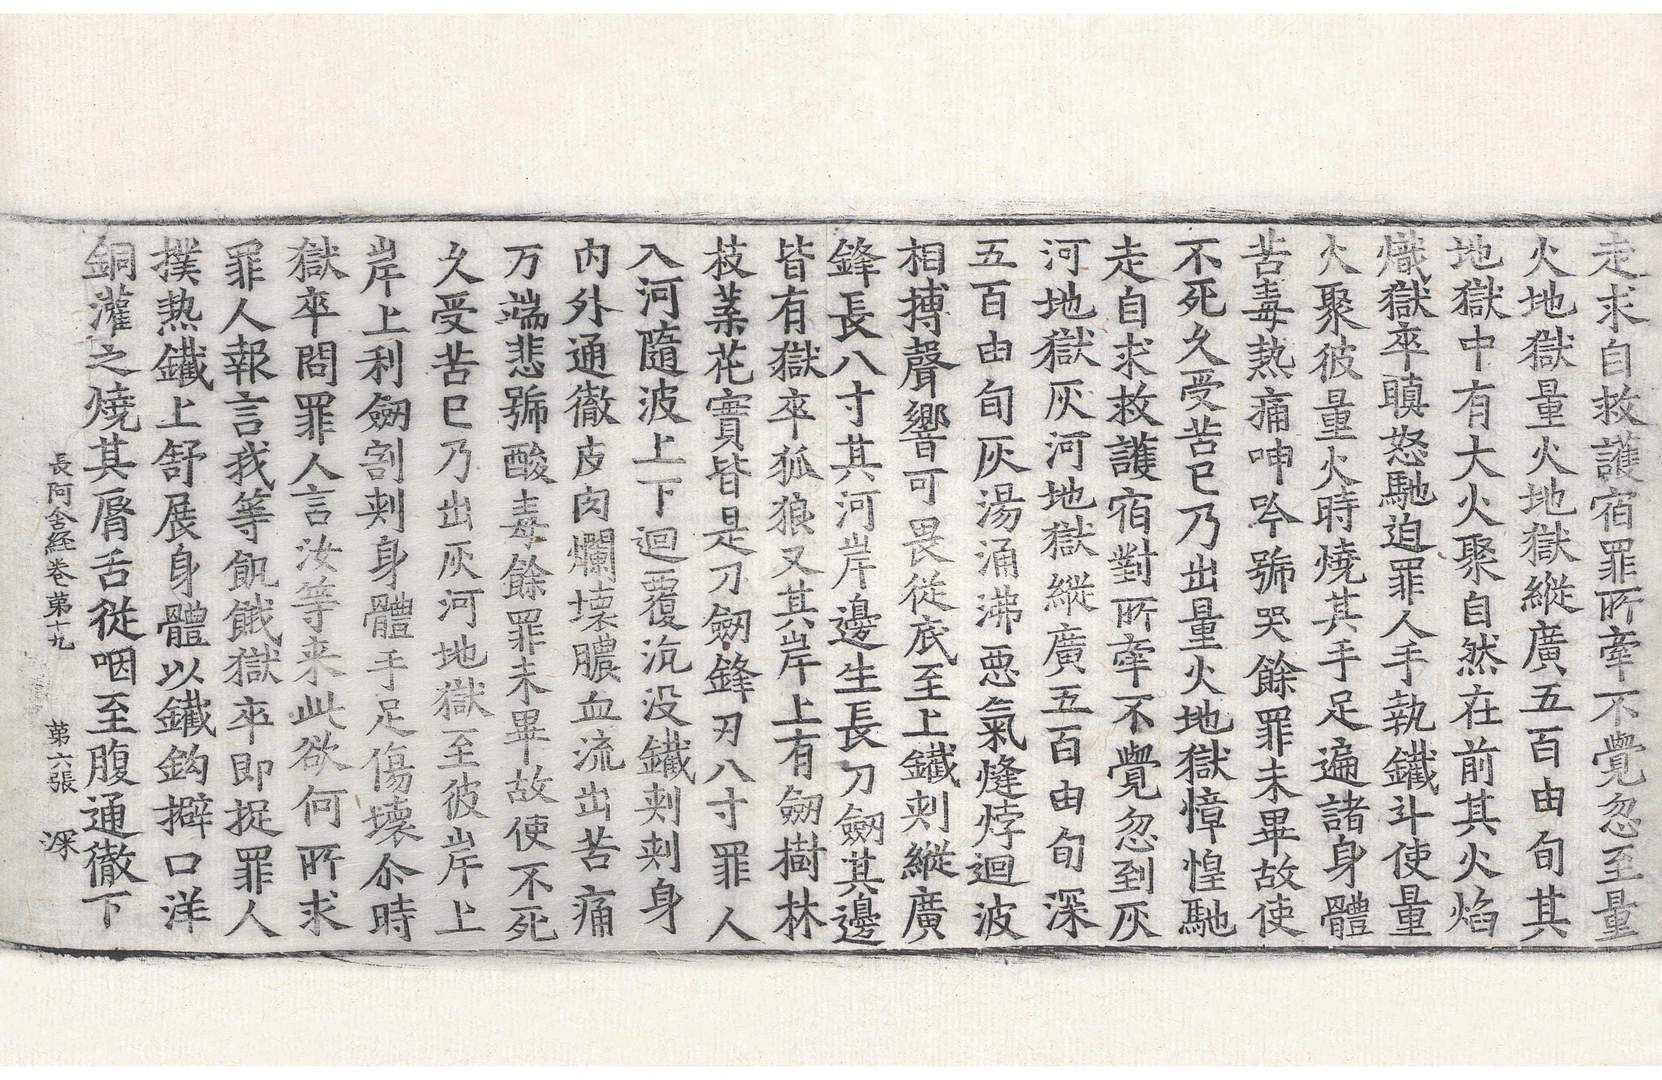 走求自救護宿罪所牽不覺忽至量
火地獄量火地獄縱廣五百由旬其
地獄中有大火聚自然在前其火焰
熾獄卒瞋怒馳迫罪人手執鐵斗使量
火聚彼量火時燒其手足遍諸身體
苦毒熱痛呻吟號哭餘罪未畢故使
不死久受苦已乃出量火地獄慞惶馳
走自求救護宿對所牽不覺忽到灰
河地獄灰河地獄縱廣五百由旬深
五百由旬灰湯涌沸惡氣熢㶿迴波
相搏聲響可畏從底至上鐵刾縱廣
鋒長八寸其河岸邊生長刀劒其邊
皆有獄卒狐狼又其岸上有劒樹林
枝葉花實皆是刀劒鋒刃八寸罪人
入河隨波上下迴覆沉没鐵刾刾身
内外通徹皮肉爛壞膿血流出苦痛
万端悲號酸毒餘罪未畢故使不死
久受苦已乃出灰河地獄至彼岸上
岸上利劒割刾身體手足傷壞尒時
獄卒問罪人言汝等来此欲何所求
罪人報言我等飢餓獄卒即捉罪人
撲熱鐵上舒展身體以鐵鈎擗口洋
銅灌之燒其脣舌從咽至腹通徹下
長阿含經卷第十九　第六張　深